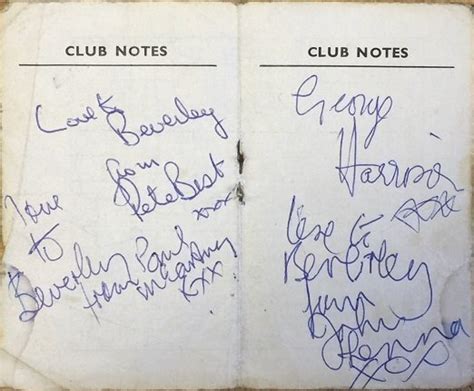 CLUB NOTES
Love to
Beverley
from
Pete Best
xxx
love
to
Beverley
from Paul
McCartney
xxx
CLUB NOTES
George
Harrison
xxx
Love to
Beverley
from
John
Lennon